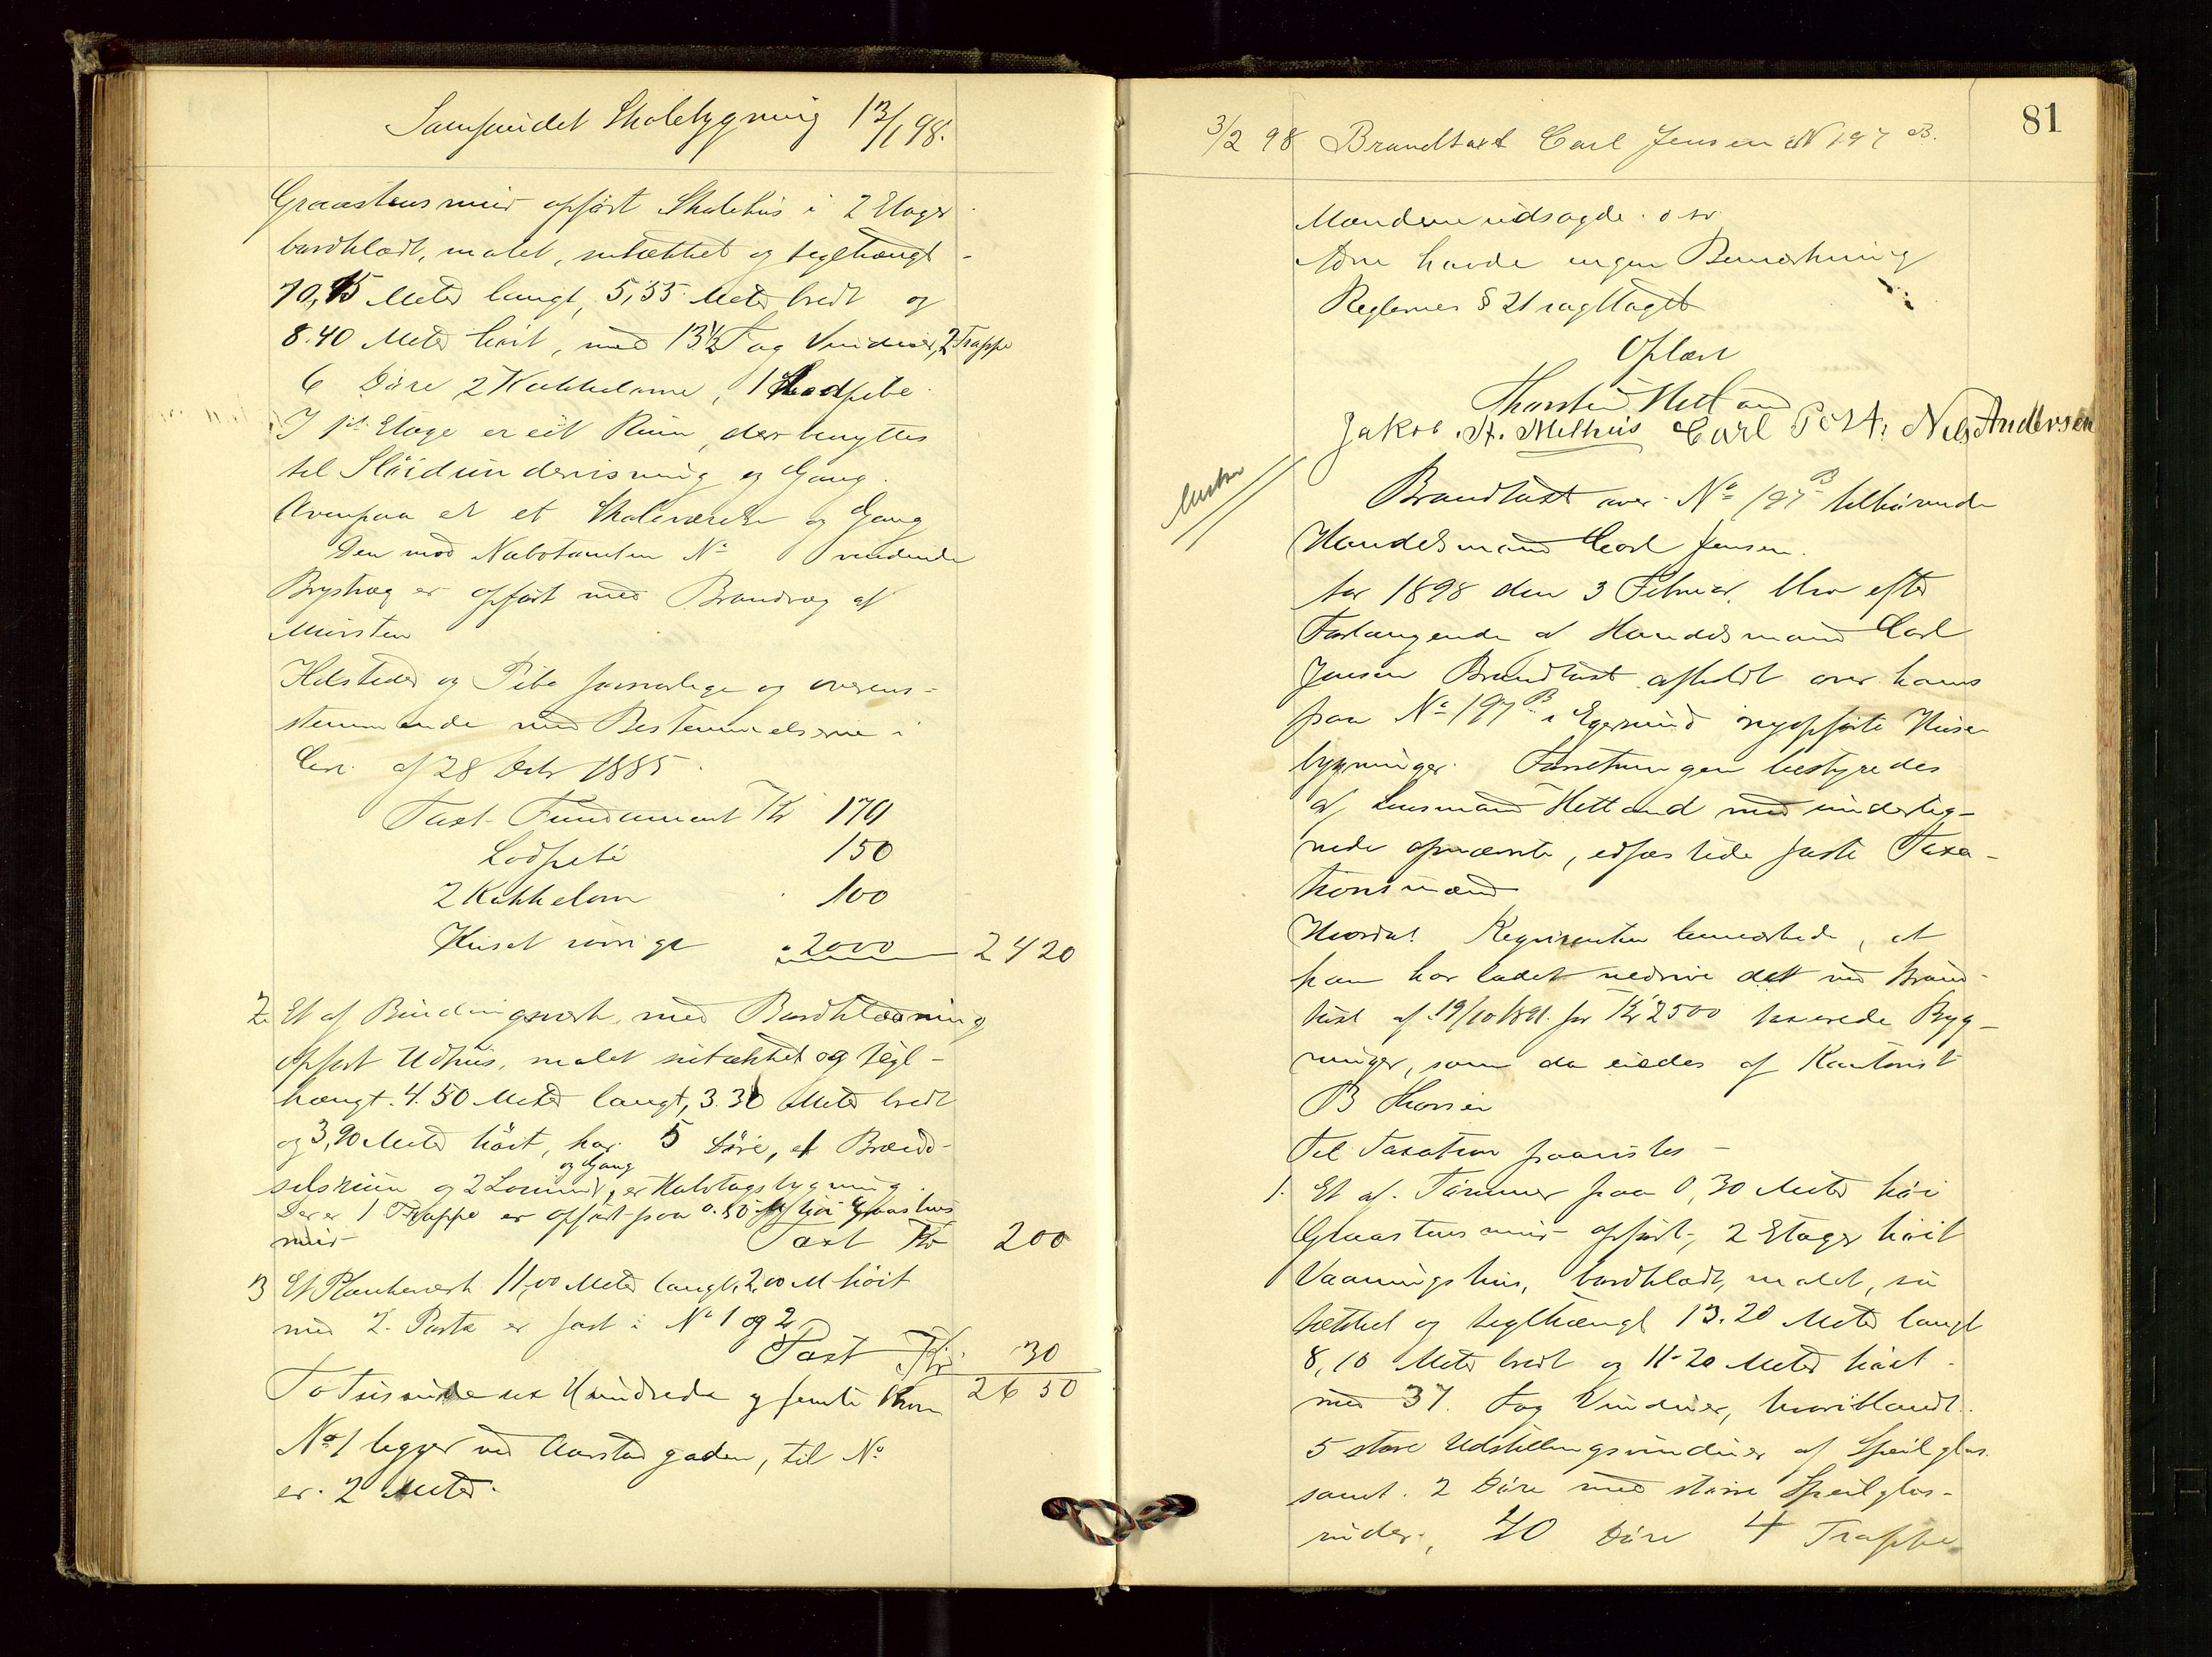 Samfundet Skolebygning 13/1 98.
Graastensmur opført Skolehus i 2 Etager
bordklædt, malet, sutækket og teglhængt -
10,45 Meter langt, 5,55 Meter bredt og
8.40 Meter høit, med 13½ Fag Vinduer, 2 Trappe
6 Døre 2 Kakkelovne, 1 Lodpibe.
I 1st Etage er eet Rum, der benyttes
til Sløidundervisning og Gang.
Ovenpaa er et Skoleværelse og Gang
Den mod Nabotomten No vendende
Brystvæg er opført med Brandvæg af
Mursten
Ildsteder og Pibe forsvarlige og overens-
stemmende med Bestemmelserne i
Circ. af 28 Octr 1885.
Taxt. Fundament Kr 170
Lodpibe 150
2 Kakkelovne 100
Huset øvrige " 2000 2420
2. Et af Bindingsværk med Bordklædning
opført Udhus, malet sutækket og tegl-
hængt. 4.50 Meter langt, 3.30 Meter bredt
og 3,90 Meter høit, har 5 Døre, et Brænd-
selsrum og 2 Locummer, og Gang er Halvtagsbygning.
Der er 1 Trappe er opført paa 0.50 M høi Graastens
mur Taxt Kr 200
3 Et Plankeværk 11,00 Meter langt, 2,00 M høit
med 2 Porte er fast i No 1 og 2
Taxt Kr. 30
To Tusinde sex Hundrede og femti Kron 2650
No 1 ligger ved Aarstadgaden, til No
er 2 Meter.
81
3/2 98 Brandtaxt Carl Jensen No 197 B.
Mændene udsagde. osv.
Ane havde ingen Bemærkning
Reglernes § 21 iagttaget
Oplæst
Thorsten Hetland
Jakob A. Melhus Carl Post. Nils Andersen
Brandtaxt over No 197 B tilhørende
Handelsmand Carl Jensen.
Aar 1898 den 3 Februar blev efter
Forlangende af Handelsmand Carl
Jensen Brandtaxt afholdt over hans
paa No 197 B i Egersund nyopførte Huse
bygninger. Forretningen bestyredes
af Lensmand Hetland med underteg-
nede opnævnte, edfæstede faste Taxa-
tionsmænd
Hvorda! Rekvirenten bemærkede, at
han har ladet nedrive det ved Brand-
taxt af 19/10 1891 for Kr 2500 taxerede Byg-
ninger, som da eiedes af Kantorist
B
Til Taxation paavistes -
1. Et af Tømmer paa 0,30 Meter høi
Graastensmur opført, 2 Etager høit
Vaaningshus, bordklædt, malet, su
tækket og teglhængt 13.20 Meter langt
8,10 Meter bredt og 11.20 Meter høit -
med 37. Fag Vinduer, hvoriblandt
5 store Udstillingsvinduer af Speilglas.
samt. 2 Døre med større Speilglas-
ruder, 20 Døre 4 Trappe